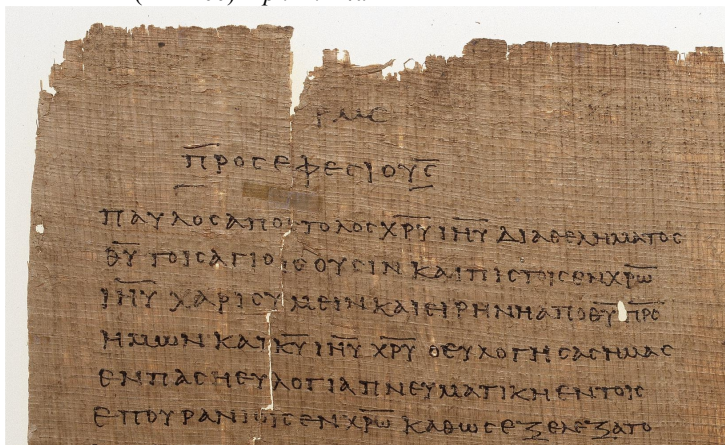 ρμϛ
π̅ρος εφεσιους̅
παυλος αποστολος χ̅ρ̅υ̅ ι̅η̅υ̅ δια θεληματος
θ̅υ̅ τοις αγιοις ουσιν και πιστοις εν χ̅ρ̅ω̅
ι̅η̅υ̅ χαρις υμειν και ειρηνη απο θ̅υ̅ π̅ρ̅ο̅
ημων και κ̅υ̅ ι̅η̅υ̅ χ̅ρ̅υ̅ ο ευλογησας ημας
εν παση ευλογια πνευματικη εν τοις
επουρανιοις εν χ̅ρ̅ω̅ καθως εξελεξατο